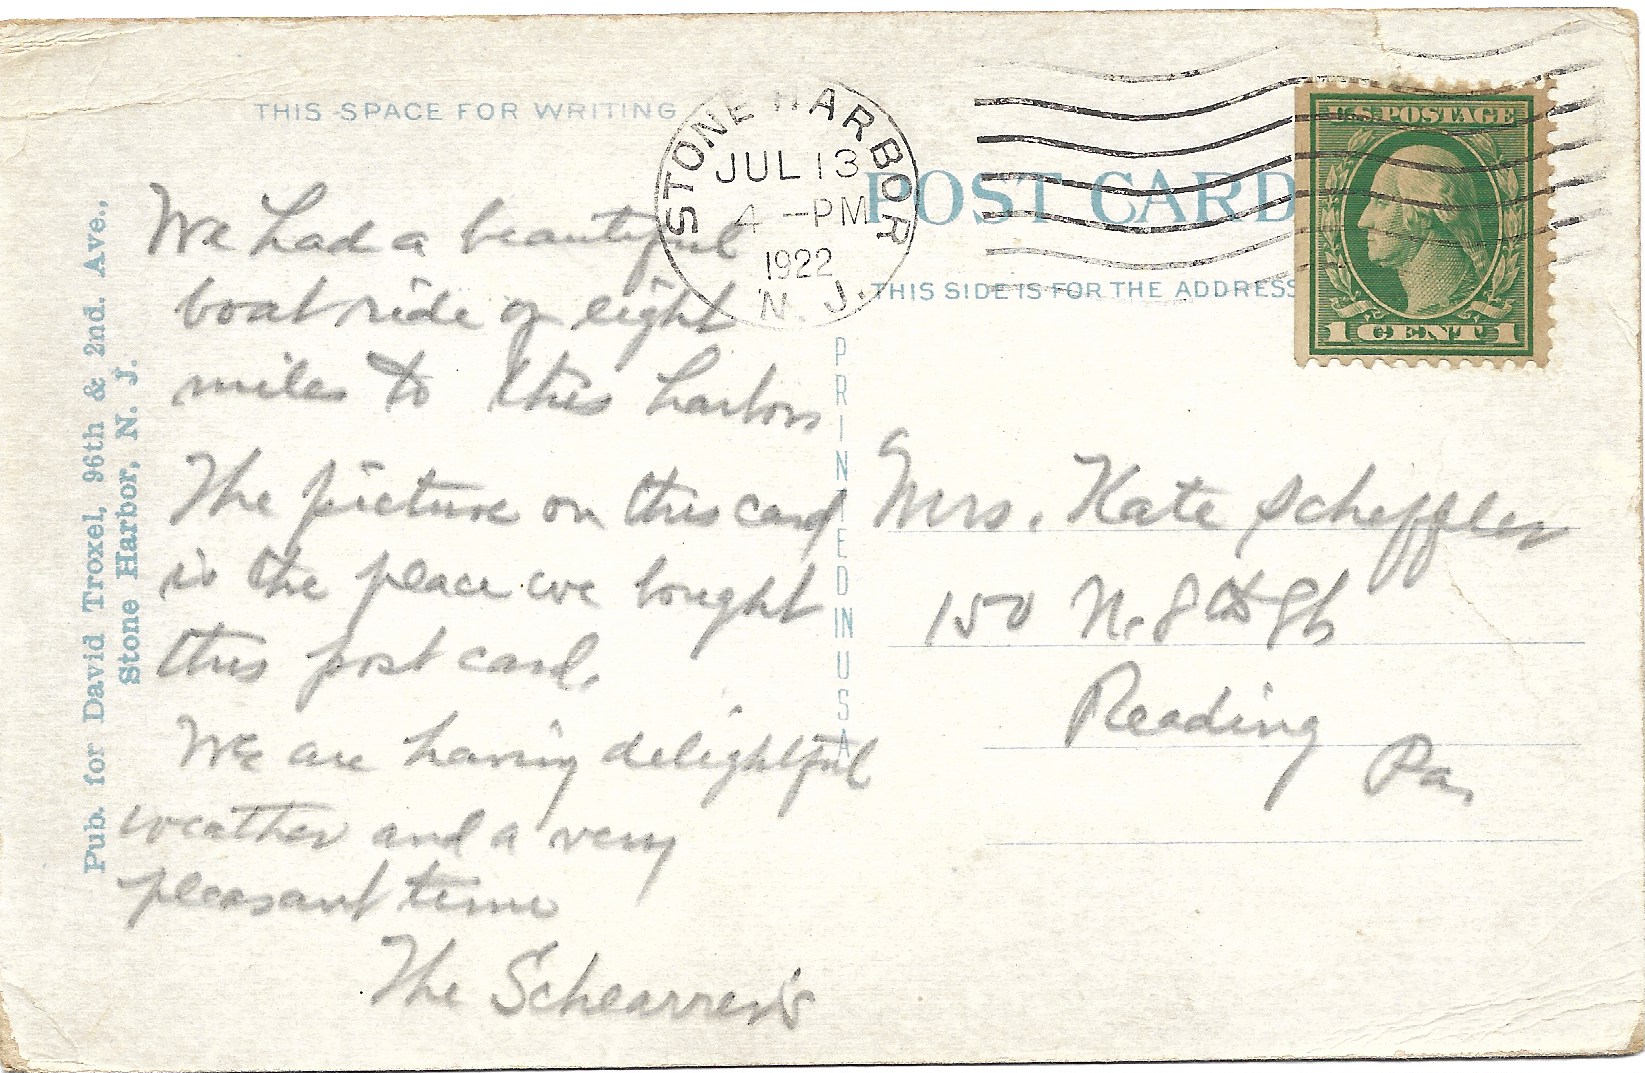 THIS SPACE FOR WRITING
STONE HARBOR
JUL 13
4 - PM
1922
N. J.
U.S. POSTAGE
1 CENT 1
POST CARD
THIS SIDE IS FOR THE ADDRESS
Pub. for David Troxel, 96th & 2nd. Ave.,
Stone Harbor, N. J.
We had a beautiful
boat ride of eight
miles to this harbor
The picture on this card
is the place we bought
this post card.
We are having delightful
weather and a very
pleasant time
The Schearrer's
PRINTED IN USA
Mrs. Kate Scheffler
150 N. 8th St
Reading
Pa.